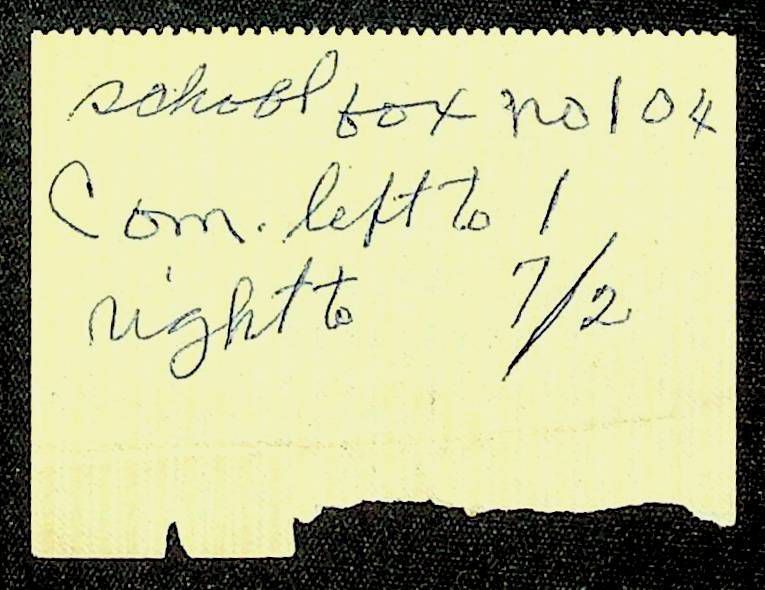 school box no 104
Com. left to 1
right to 7/2